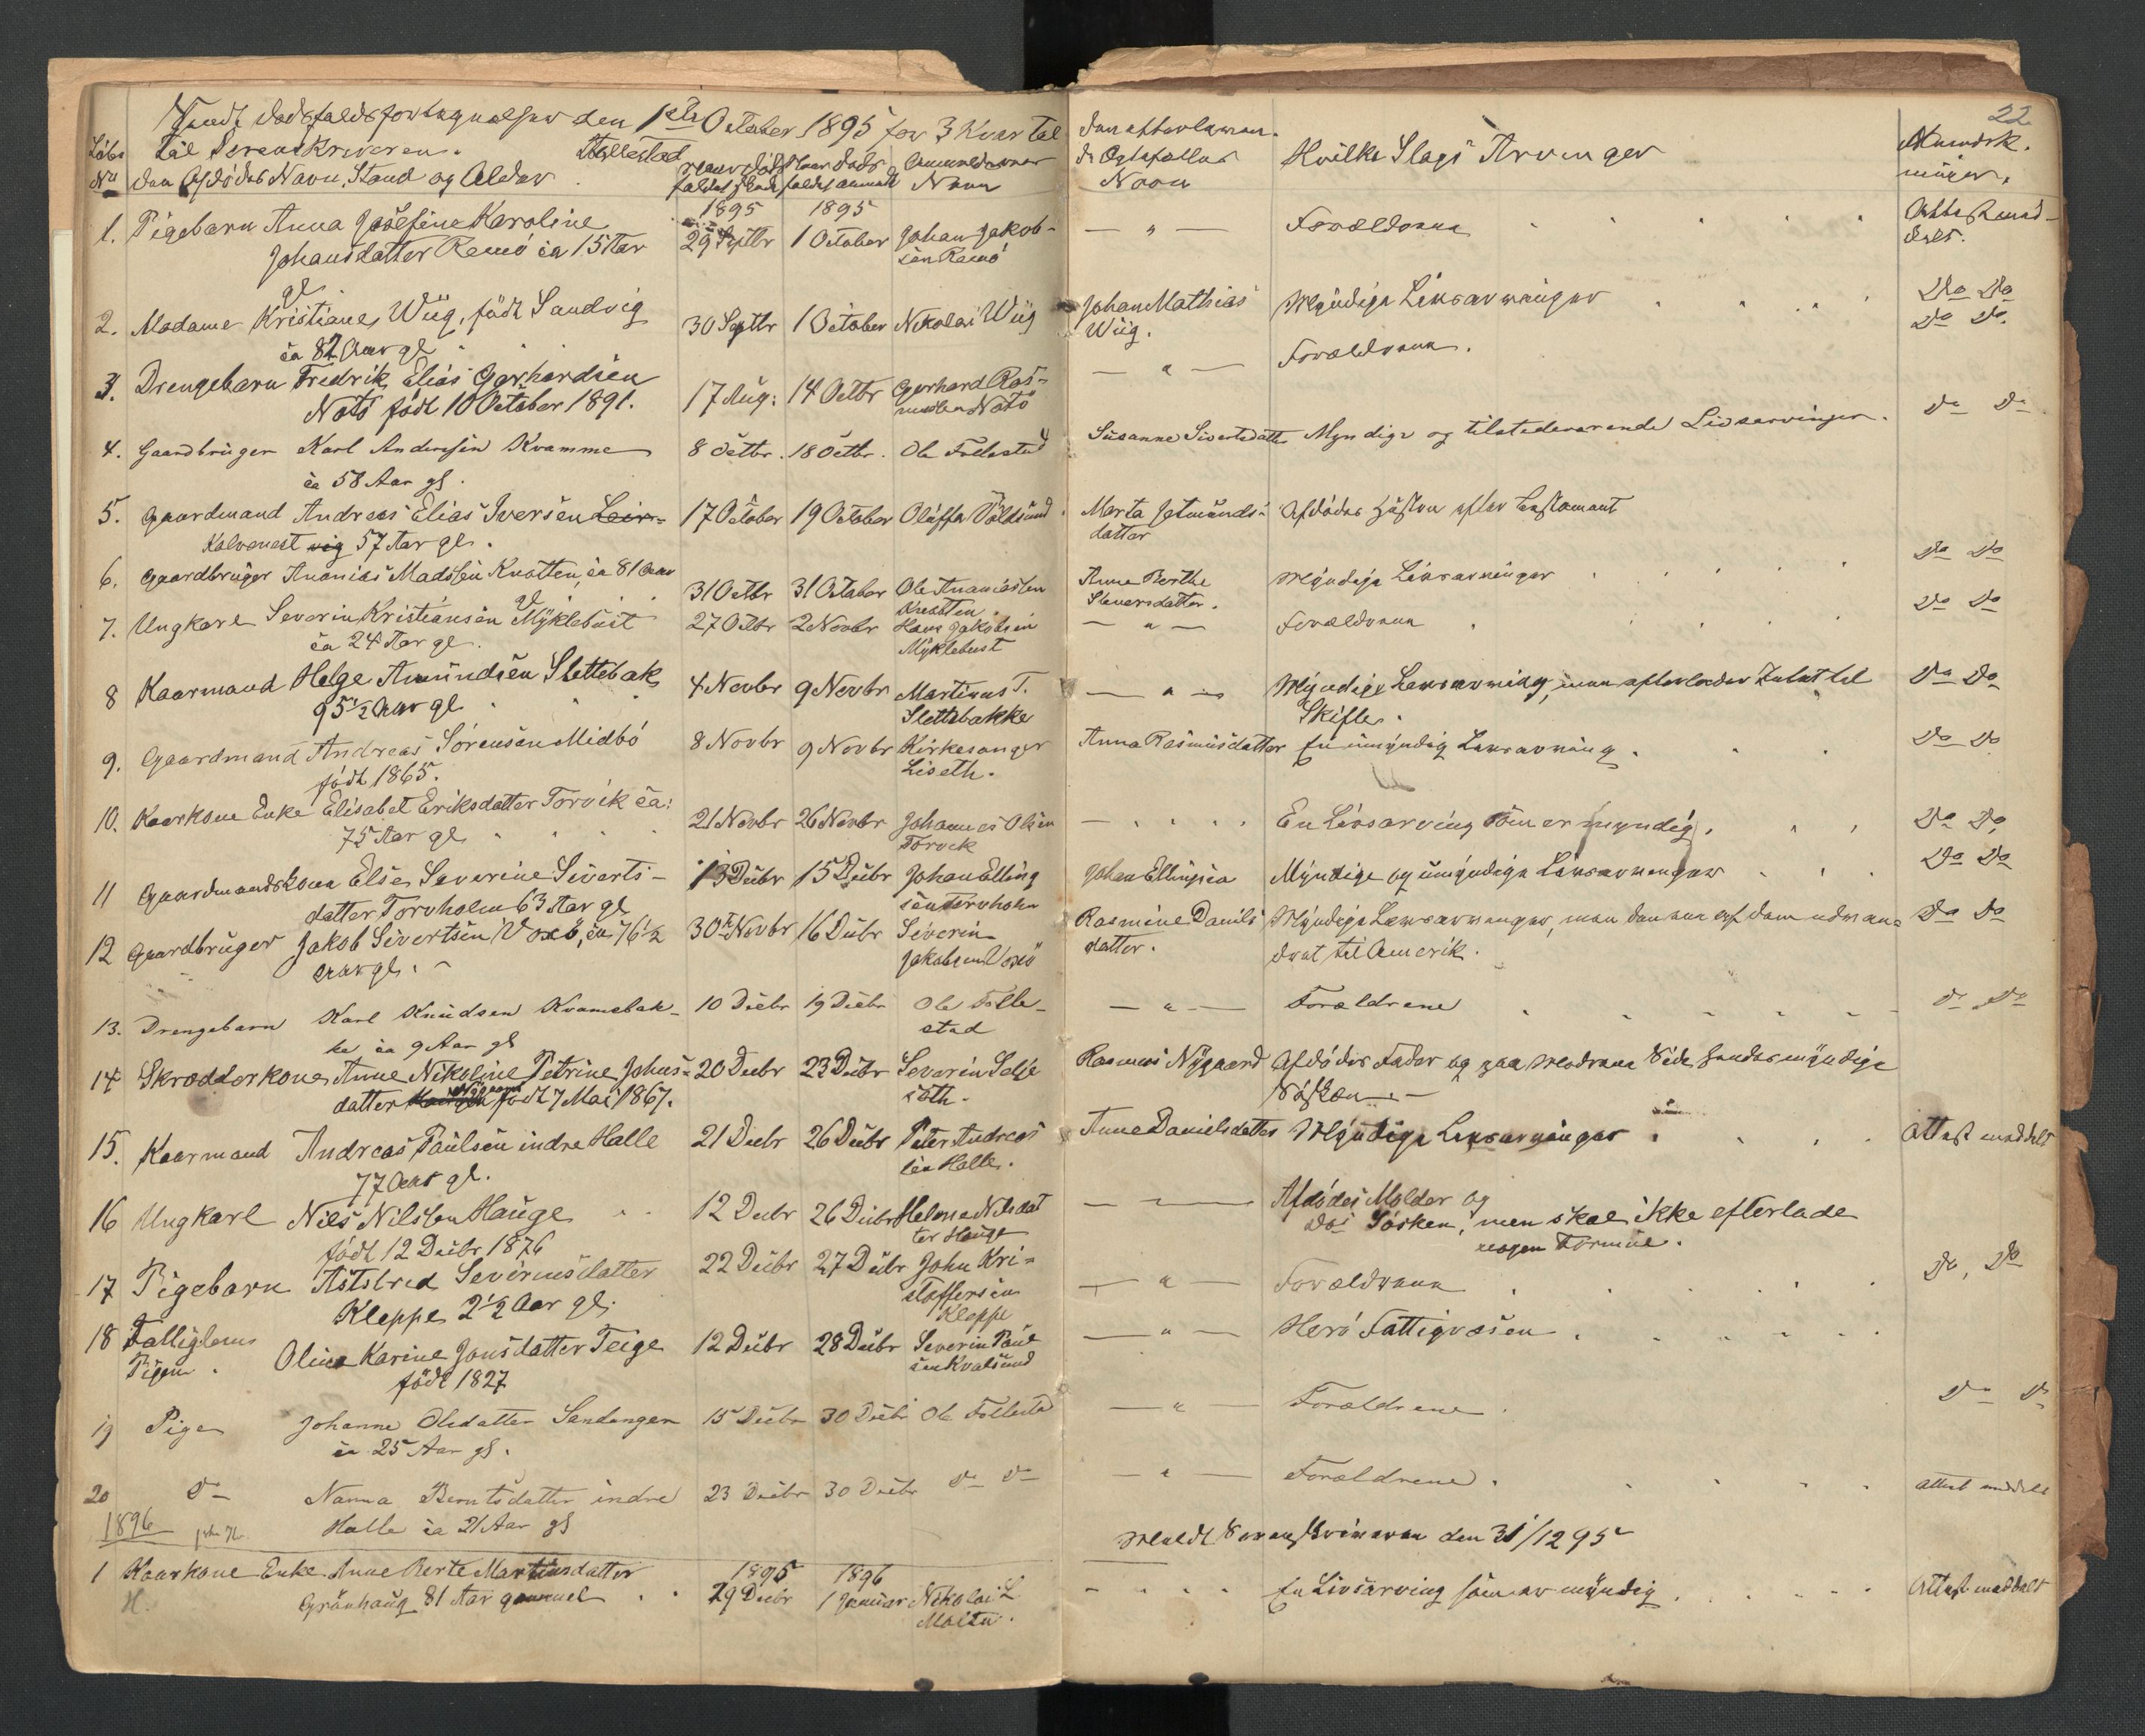 Sendt Dødsfaldsfortegnelsen den 1ste October 1895 for 3 Kvartal
til Sorenskriveren. Tollestad
Løbe No
Den Afdødes Navn, Stand og Alder
Naar Døds faldet skede
Naar Døds faldet anmeldt
Anmelderens Navn
Den efterleven-
de Ægtefælles
Navn
Hvilke Slags Arvinger
22
Anmærk-
ninger.
1895 1895
1. Pigebarn Anna Josefine Karoline
Johansdatter Remö ca 15 Aar gl
29 Septbr 1 October Johan Jakob-
sen Remö
— " — Forældrene
Attest med-
delt.
2. Madame Kristiane Wiig, født Sandvig
ca 82 Aar gl
30 Septbr 1 October Nikolai Wiig
Johan Mathias
Wiig.
Myndige Livsarvinger
Do Do
3. Drengebarn Fredrik Elias Gerhardsen
Notö født 10 October 1891.
17 Aug: 14 Octbr Gerhard Ras-
mussen Notö
— " — Forældrene.
Do Do.
4. Gaardbruger Karl Andersen Kvamme
ca 58 Aar gl.
8 Octbr. 18 Octbr. Ole Follestad
Susanne Sivertsdatter Myndige og tilstedeværende Livsarvinger. Do Do
5. Gaardmand Andreas Elias Iversen Leir-
Kalvenest vig 57 Aar gl.
17 October 19 October Oluffa Voldsund
Marta Jetmunds-
datter
Afdødes Søsken efter Testament
6. Gaardbruger Ananias Madssen Knotten, ca 81 Aar
gl
31 Octbr 31 October Ole Ananiassen
Knotten.
Anne Berthe
Sleversdatter.
Myndige Livsarvinger
Do Do
7. Ungkarl Severin Kristiansen Myklebust
ca 24 Aar gl.
27 Octbr 2 Novbr Hans Jakobsen
Myklebust
— " — Forældrene
Do Do
8 Kaarmand Helge Amundsen Slettebak
95½ Aar gl
4 Novbr 9 Novbr Martinus T.
Slettebakke
— " — Myndige Livsarving, men efterlader Intet til
Skifte.
Do Do
9. Gaardmand Andreas Sörensen Midbö
født 1865.
8 Novbr 9 Novbr Kirkesanger
Liseth.
Anna Rasmusdatter En umyndig Livsarving.
Do Do
10. Kaarkone Enke Elisabet Eriksdatter Torvik ca:
75 Aar gl
21 Novbr 26 Novbr Johannes Olsen
Torvik
En Livsarving som er myndig.
Do Do
11 Gaardmandskone Else Severine Siverts-
datter Torvholm 63 Aar gl
13 Decbr 15 Decbr Johan Elling
sen Torvholm
Johan Ellingsen Myndige og umyndige Livsarvinger
Do Do
12 Gaardbruger Jakob Sivertsen Voxö, ca 76½
Aar gl.
30te Novbr 16 Decbr Severin
Jakobsen Voxö
Rasmine Daniels
datter.
Myndige Livsarvinger, men den ene af dem udvan-
dret til Amerik.
Do Do
13. Drengebarn Karl Knudsen Kvamebak-
ke ca 9 Aar gl
10 Decbr 19 Decbr Ole Folle-
stad
— " — Forældrene
Do Do
14 Skrædderkone Anne Nikoline Petrine Johns-
datter Nögaard født 7 Mai 1867.
20 Decbr 23 Decbr Severin Selje
sæth.
Rasmus Nygaard Afdødes Fader og paa Modrene Side hendes myndige
Søsken
15. Kaarmand Andreas Paulsen indre Halle
77 Aar gl.
21 Decbr 26 Decbr Peter Andreas
sen Halle.
Anne Danielsdatter Myndige Livsarvinger
Attest meddelt
16 Ungkarl Nils Nilssen Hauge
født 12 Decbr 1876
12 Decbr 26 Decbr Helene Nilsdat
ter Hauge
Afdødes Molder og
Do Søsken, men skal ikke efterlade
nogen Formue.
17 Pigebarn Astrid Severinsdatter
Kleppe 2½ Aar gl.
22 Decbr 27 Decbr John Kri-
stoffersen
Kleppe
— " — Forældrene
Do, Do
18 Fattiglems
Pigen.
Oline Karine Jonsdatter Teige
født 1827
12 Decbr 28 Decbr Severin Paul
sen Kvalsund
— " — Herö Fattigvæsen.
19 Pige Johanne Olsdatter Sandanger
ca 25 Aar gl.
15 Decbr 30 Decbr Ole Follestad
— " — Forældrene.
Do Do
20 Do Nanna Berntsdatter indre
Halle ca 21 Aar gl
23 Decbr 30 Decbr Do Do
— " — Forældrene.
Attest meddelt
1896
Meldt Sorenskriveren den 31/12 95
1 Kaarkone Enke Anne Berte Martinsdatter
Grönhaug 81 Aar gammel
1895 1896
29 Decbr 1 Januar Nikolai L
Moltu.
En Livsarving som er myndig
Attest meddelt
H.